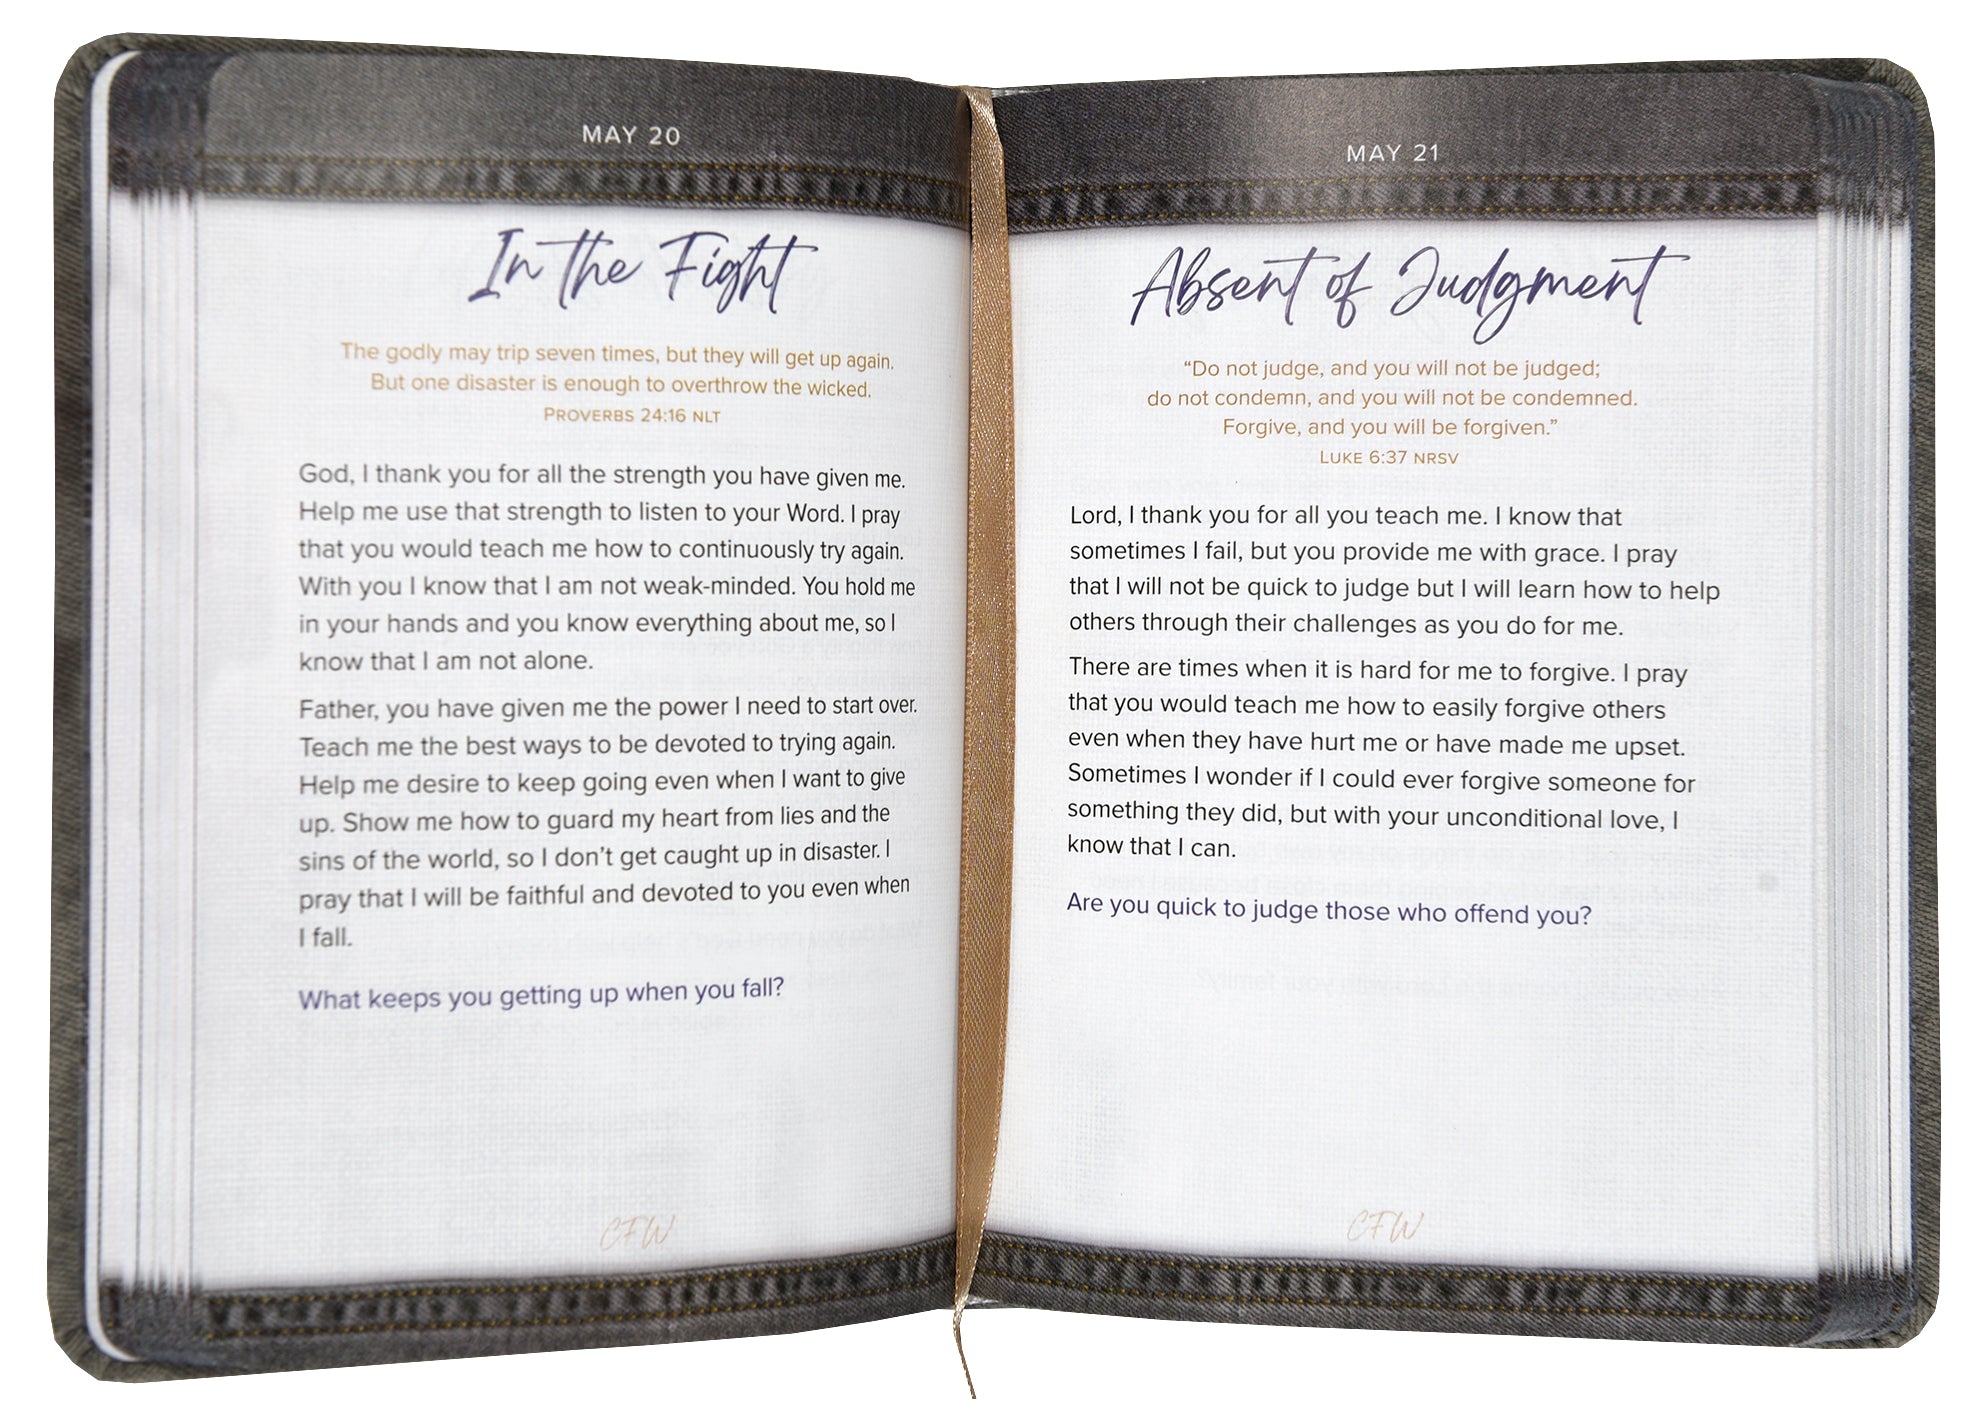 MAY 20
In the Fight
The godly may trip seven times, but they will get up again.
But one disaster is enough to overthrow the wicked.
PROVERBS 24:16 NLT
God, I thank you for all the strength you have given me.
Help me use that strength to listen to your Word. I pray
that you would teach me how to continuously try again.
With you I know that I am not weak-minded. You hold me
in your hands and you know everything about me, so I
know that I am not alone.
Father, you have given me the power I need to start over.
Teach me the best ways to be devoted to trying again.
Help me desire to keep going even when I want to give
up. Show me how to guard my heart from lies and the
sins of the world, so I don’t get caught up in disaster. I
pray that I will be faithful and devoted to you even when
I fall.
What keeps you getting up when you fall?
CFW
MAY 21
Absent of Judgment
“Do not judge, and you will not be judged;
do not condemn, and you will not be condemned.
Forgive, and you will be forgiven.”
LUKE 6:37 NRSV
Lord, I thank you for all you teach me. I know that
sometimes I fail, but you provide me with grace. I pray
that I will not be quick to judge but I will learn how to help
others through their challenges as you do for me.
There are times when it is hard for me to forgive. I pray
that you would teach me how to easily forgive others
even when they have hurt me or have made me upset.
Sometimes I wonder if I could ever forgive someone for
something they did, but with your unconditional love, I
know that I can.
Are you quick to judge those who offend you?
CFW